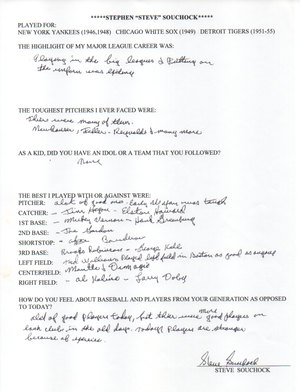 *****STEPHEN "STEVE" SOUCHOCK*****
PLAYED FOR:
NEW YORK YANKEES (1946,1948) CHICAGO WHITE SOX (1949) DETROIT TIGERS (1951-55)
THE HIGHLIGHT OF MY MAJOR LEAGUE CAREER WAS:
Playing in the big leagues & Putting on
the uniform was exciting
THE TOUGHEST PITCHERS I EVER FACED WERE:
There were many of them.
Newhouser, Feller - Reynolds & many more
AS A KID, DID YOU HAVE AN IDOL OR A TEAM THAT YOU FOLLOWED?
None
THE BEST I PLAYED WITH OR AGAINST WERE:
PITCHER: a lot of good ones Early Wynn was tough
CATCHER: - Jim Hegan - Elston Howard
1ST BASE: - Mickey Vernon - Hank Greenberg
2ND BASE: - Joe Gordon
SHORTSTOP: - Lou Boudreau
3RD BASE: Brooks Robinson - George Kell
LEFT FIELD: Ted Williams Played left field in Boston as good as anyone
CENTERFIELD: Mantle & Dimaggio
RIGHT FIELD: - Al Kaline - Larry Doby
HOW DO YOU FEEL ABOUT BASEBALL AND PLAYERS FROM YOUR GENERATION AS OPPOSED
TO TODAY?
alot of good players today, but there were more good players on
each club in the old days. Todays players are stronger
because of
Steve Souchock
STEVE SOUCHOCK